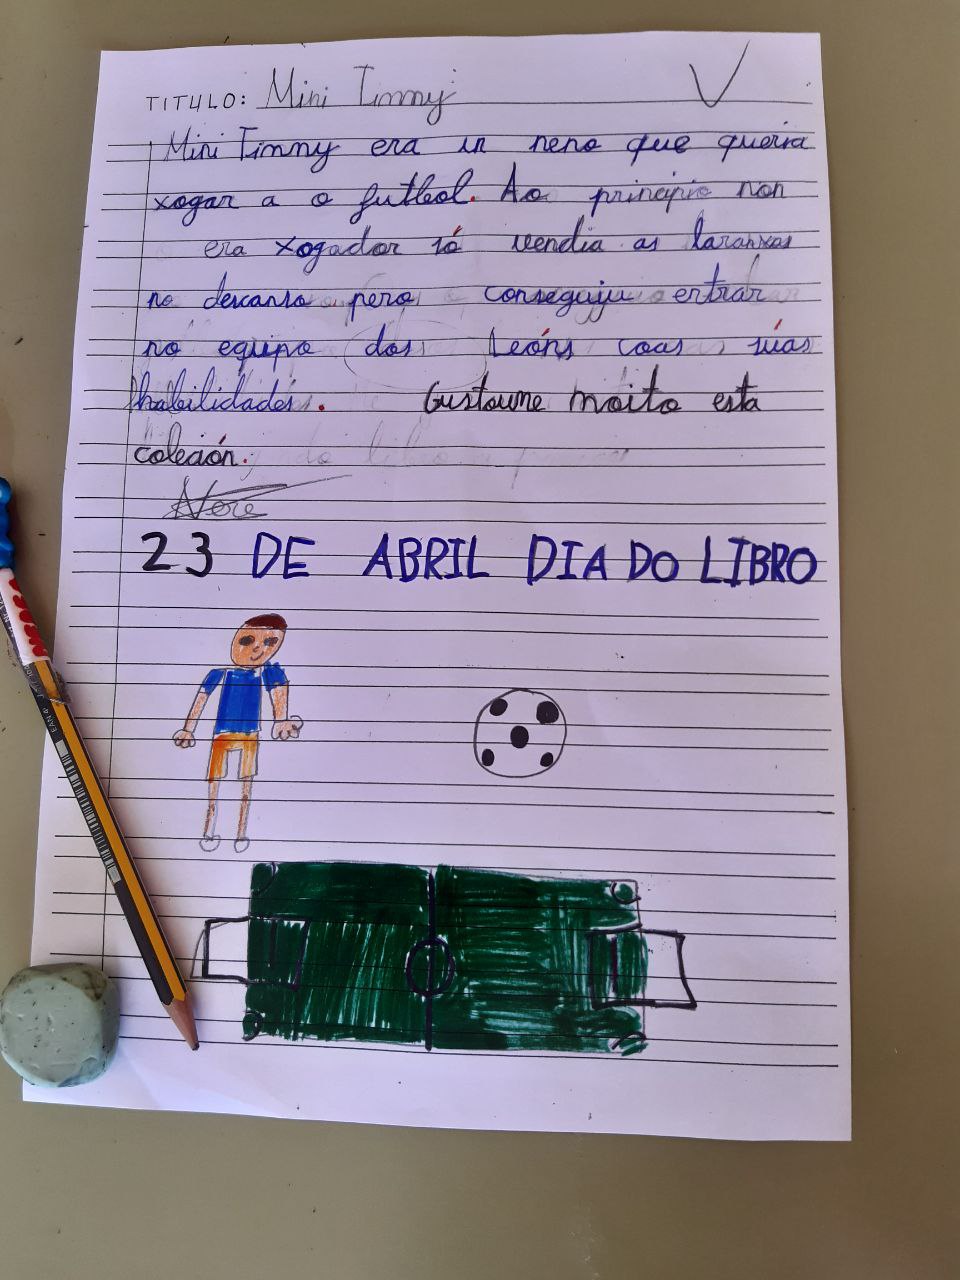 TITULO: Mini Timmy
Mini Timmy era un neno que quería
xogar a o futbol. Ao principio non
era xogador só vendia as laranxas
no descanso pero conseguiu entrar
no equipo dos Leóns coas súas
habilidades. Gustoume moito esta
colección.
23 DE ABRIL DIA DO LIBRO